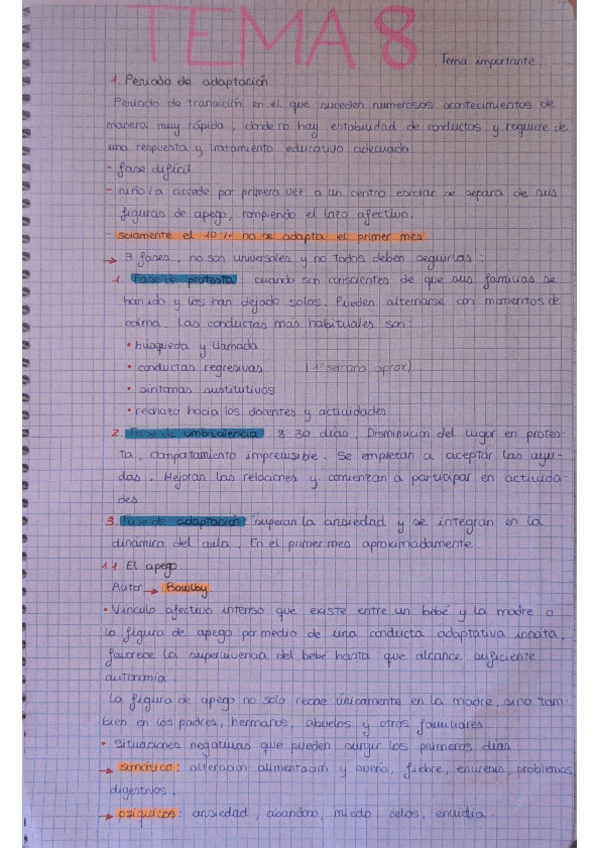 TEMA 8
Tema importante
1. Periodo de adaptación
Periodo de transición en el que suceden numerosos acontecimientos de
manera muy rápida, donde no hay estabilidad de conductas y requiere de
una respuesta y tratamiento educativo adecuado.
- fase difícil
- niño/a accede por primera vez a un centro escolar se separa de sus
figuras de apego, rompiendo el lazo afectivo.
- solamente el 10% no se adapta el primer mes
→ 3 fases, no son universales y no todos deben seguirlas:
1. Fase de protesta: cuando son conscientes de que sus familias se
han ido y los han dejado solos. Pueden alternarse con momentos de
calma. Las conductas más habituales son:
• búsqueda y llamada
• conductas regresivas (1ª semana aprox)
• síntomas sustitutivos
• rechazo hacia los docentes y actividades
2. Fase de ambivalencia: 8 30 días. Disminución del vigor en protes-
ta, comportamiento imprevisible. Se empiezan a aceptar las ayu-
das. Mejoran las relaciones y comienzan a participar en activida-
des
3. Fase de adaptación: superan la ansiedad y se integran en la
dinámica del aula. En el primer mes aproximadamente.
1.1 El apego
Autor → Bowlby.
• Vínculo afectivo intenso que existe entre un bebé y la madre o
la figura de apego por medio de una conducta adaptativa innata,
favorece la supervivencia del bebé hasta que alcance suficiente
autonomía.
La figura de apego no solo recae únicamente en la madre, sino tam-
bien en los padres, hermanos, abuelos y otros familiares.
• Situaciones negativas que pueden surgir los primeros días
→ somático: alteración alimentación y sueño, fiebre, enuresis, problemas
digestivos.
→ psíquicos: ansiedad, abandono, miedo, celos, envidia.